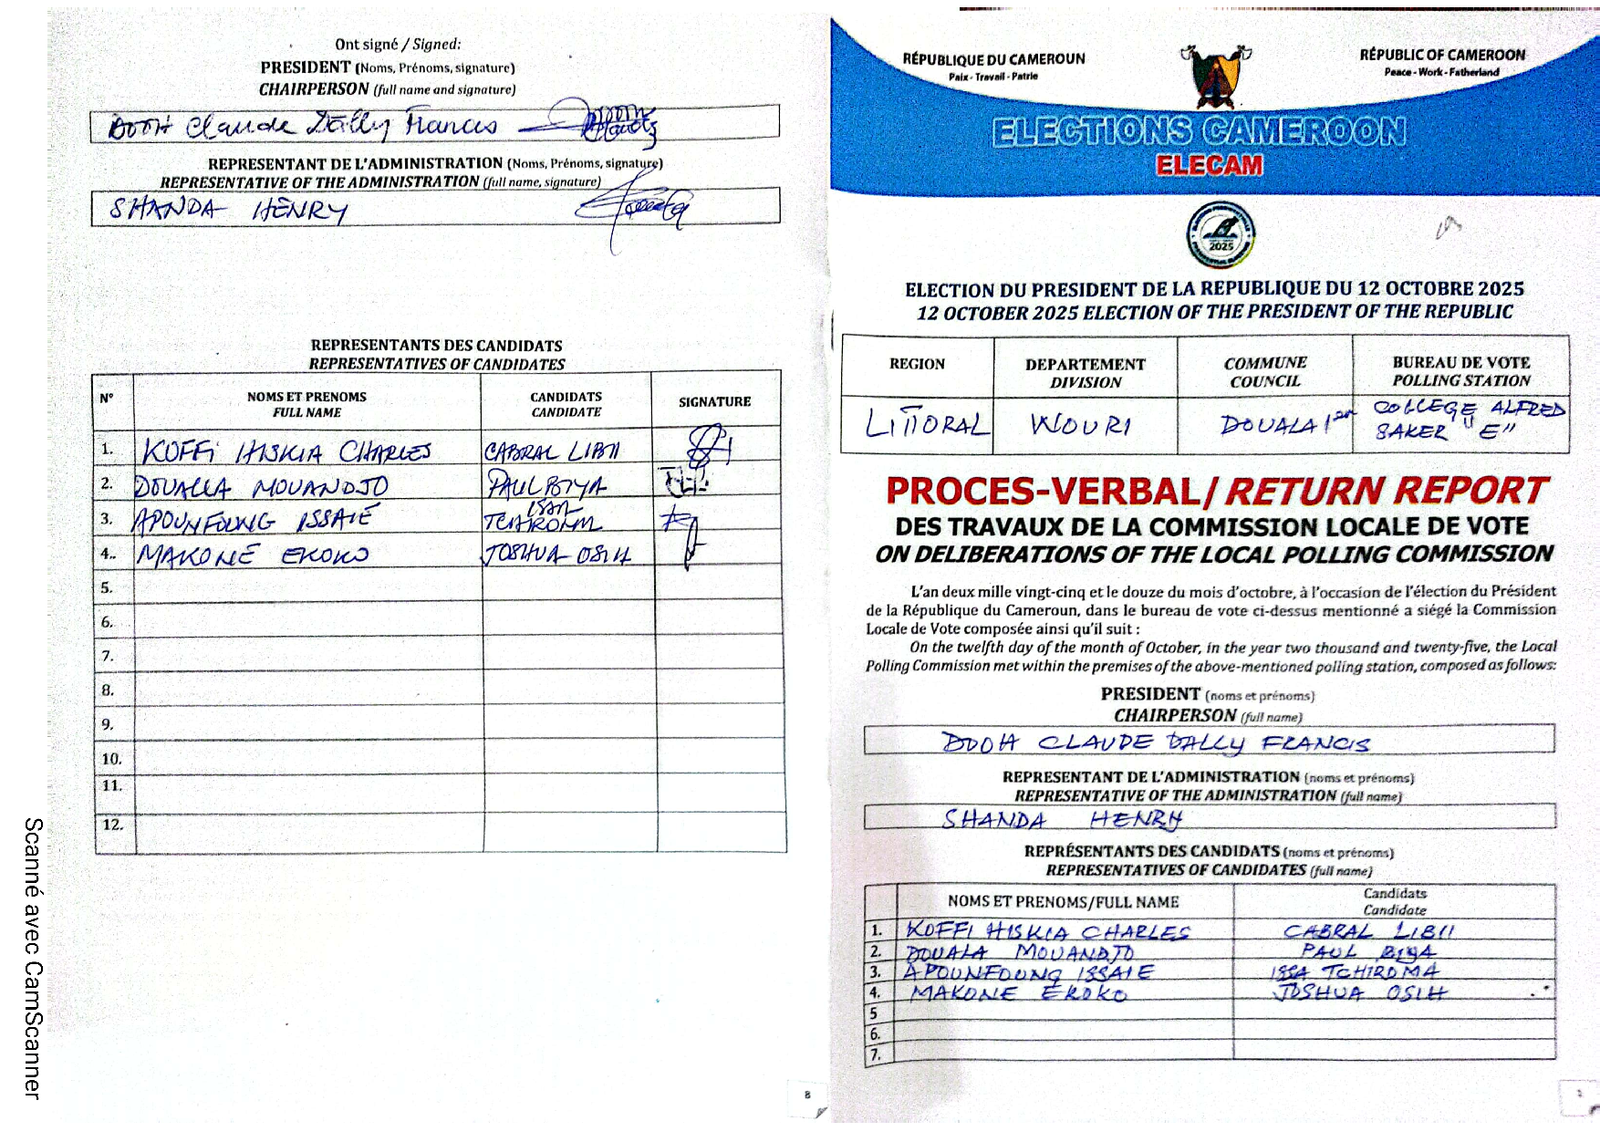 Ont signé / Signed:
PRESIDENT (Noms, Prénoms, signature)
CHAIRPERSON (full name and signature)
DOOH Claude Dally Francis
REPRESENTANT DE L'ADMINISTRATION (Noms, Prénoms, signature)
REPRESENTATIVE OF THE ADMINISTRATION (full name, signature)
SHANDA HENRY
REPRESENTANTS DES CANDIDATS
REPRESENTATIVES OF CANDIDATES
N° NOMS ET PRENOMS FULL NAME CANDIDATS CANDIDATE SIGNATURE
1. KOFFI HISKIA CHARLES CABRAL LIBII
2. DOUALLA MOUANDJO PAUL BIYA
3. APOUNFOUNG ISSAIE ISSA TCHIROMA
4.. MAKONE EKOKO JOSHUA OSIH
5.
6.
7.
8.
9.
10.
11.
12.
8
Scanné avec CamScanner
RÉPUBLIQUE DU CAMEROUN
Paix - Travail - Patrie
RÉPUBLIC OF CAMEROON
Peace - Work - Fatherland
ELECTIONS CAMEROON
ELECAM
2025
ELECTION DU PRESIDENT DE LA REPUBLIQUE DU 12 OCTOBRE 2025
12 OCTOBER 2025 ELECTION OF THE PRESIDENT OF THE REPUBLIC
REGION DEPARTEMENT DIVISION COMMUNE COUNCIL BUREAU DE VOTE POLLING STATION
LITTORAL WOURI DOUALA 1er COLLEGE ALFRED SAKER "E"
PROCES-VERBAL/ RETURN REPORT
DES TRAVAUX DE LA COMMISSION LOCALE DE VOTE
ON DELIBERATIONS OF THE LOCAL POLLING COMMISSION
L'an deux mille vingt-cinq et le douze du mois d'octobre, à l'occasion de l'élection du Président
de la République du Cameroun, dans le bureau de vote ci-dessus mentionné a siégé la Commission
Locale de Vote composée ainsi qu'il suit :
On the twelfth day of the month of October, in the year two thousand and twenty-five, the Local
Polling Commission met within the premises of the above-mentioned polling station, composed as follows:
PRESIDENT (noms et prénoms)
CHAIRPERSON (full name)
DOOH CLAUDE DALLY FRANCIS
REPRESENTANT DE L'ADMINISTRATION (noms et prénoms)
REPRESENTATIVE OF THE ADMINISTRATION (full name)
SHANDA HENRY
REPRÉSENTANTS DES CANDIDATS (noms et prénoms)
REPRESENTATIVES OF CANDIDATES (full name)
NOMS ET PRENOMS/FULL NAME Candidats Candidate
1. KOFFI HISKIA CHARLES CABRAL LIBII
2. DOUALA MOUANDJO PAUL BIYA
3. APOUNFOUNG ISSAIE ISSA TCHIROMA
4. MAKONE EKOKO JOSHUA OSIH
5
6.
7.